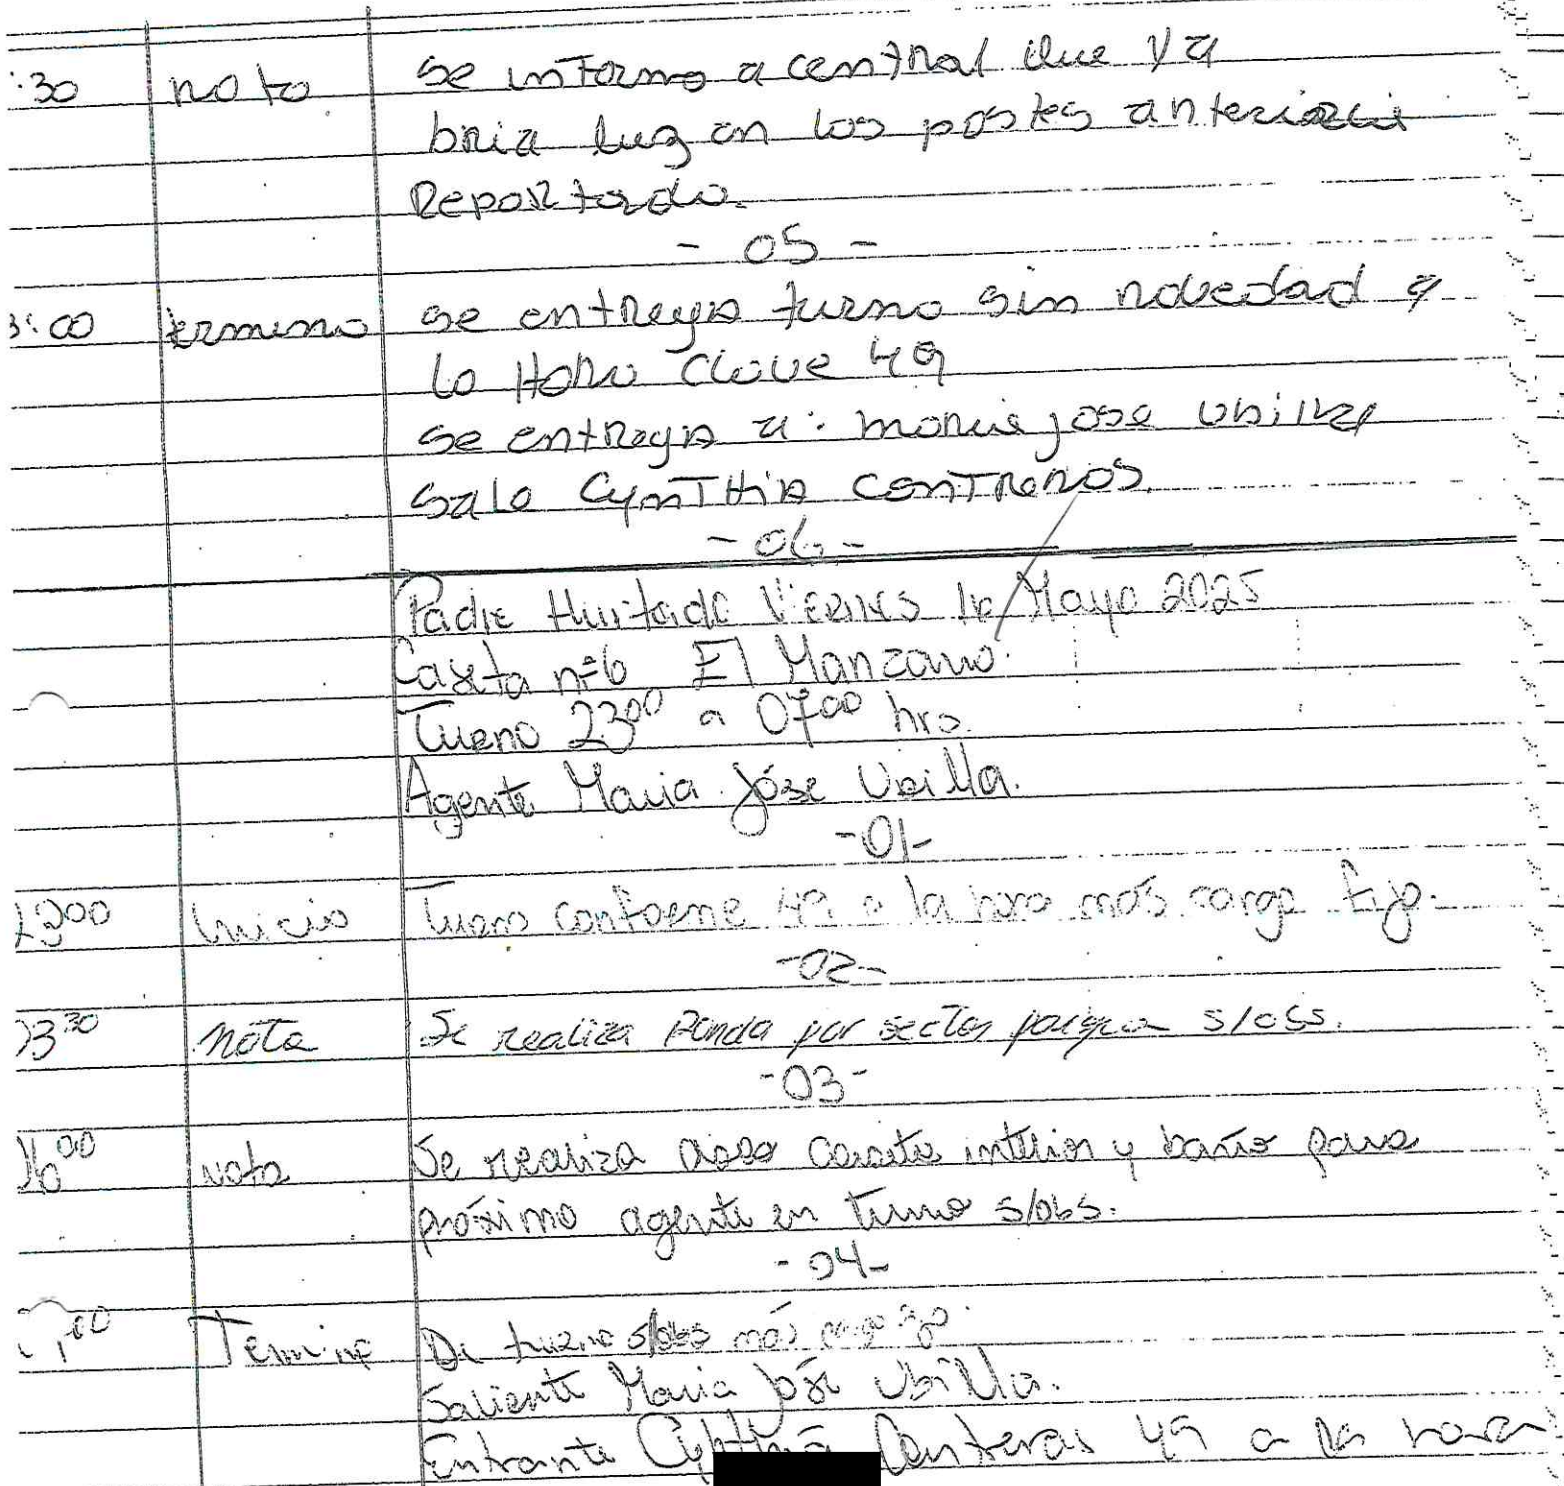 :30 nota se informo a central que ya
bria luz en los postes anterior
Reportado.
- 05 -
3:00 termino se entrega turno sin novedad a
la Hora clave 49
se entrega a: maria jose Ubilla
sale CynTHia conTReras.
- 06 -
Padre Hurtado Viernes 16 Mayo 2025
Caseta n=6 El Manzano.
Turno 23⁰⁰ a 07⁰⁰ hrs.
Agente Maria José Ubilla.
-01-
2300 Inicio Turno conforme 49 a la hora más cargo fijo.
-02-
23³⁰ nota Se realiza Ronda por sector parque s/obs.
-03-
⁰⁰ nota Se realiza aseo caseta interior y baño para
próximo agente en turno s/obs.
-04-
⁰⁰ Termino De turno s/obs más cargo fijo.
Saliente Maria José Ubilla.
Entrante Cynthia Conteras 49 a la hora